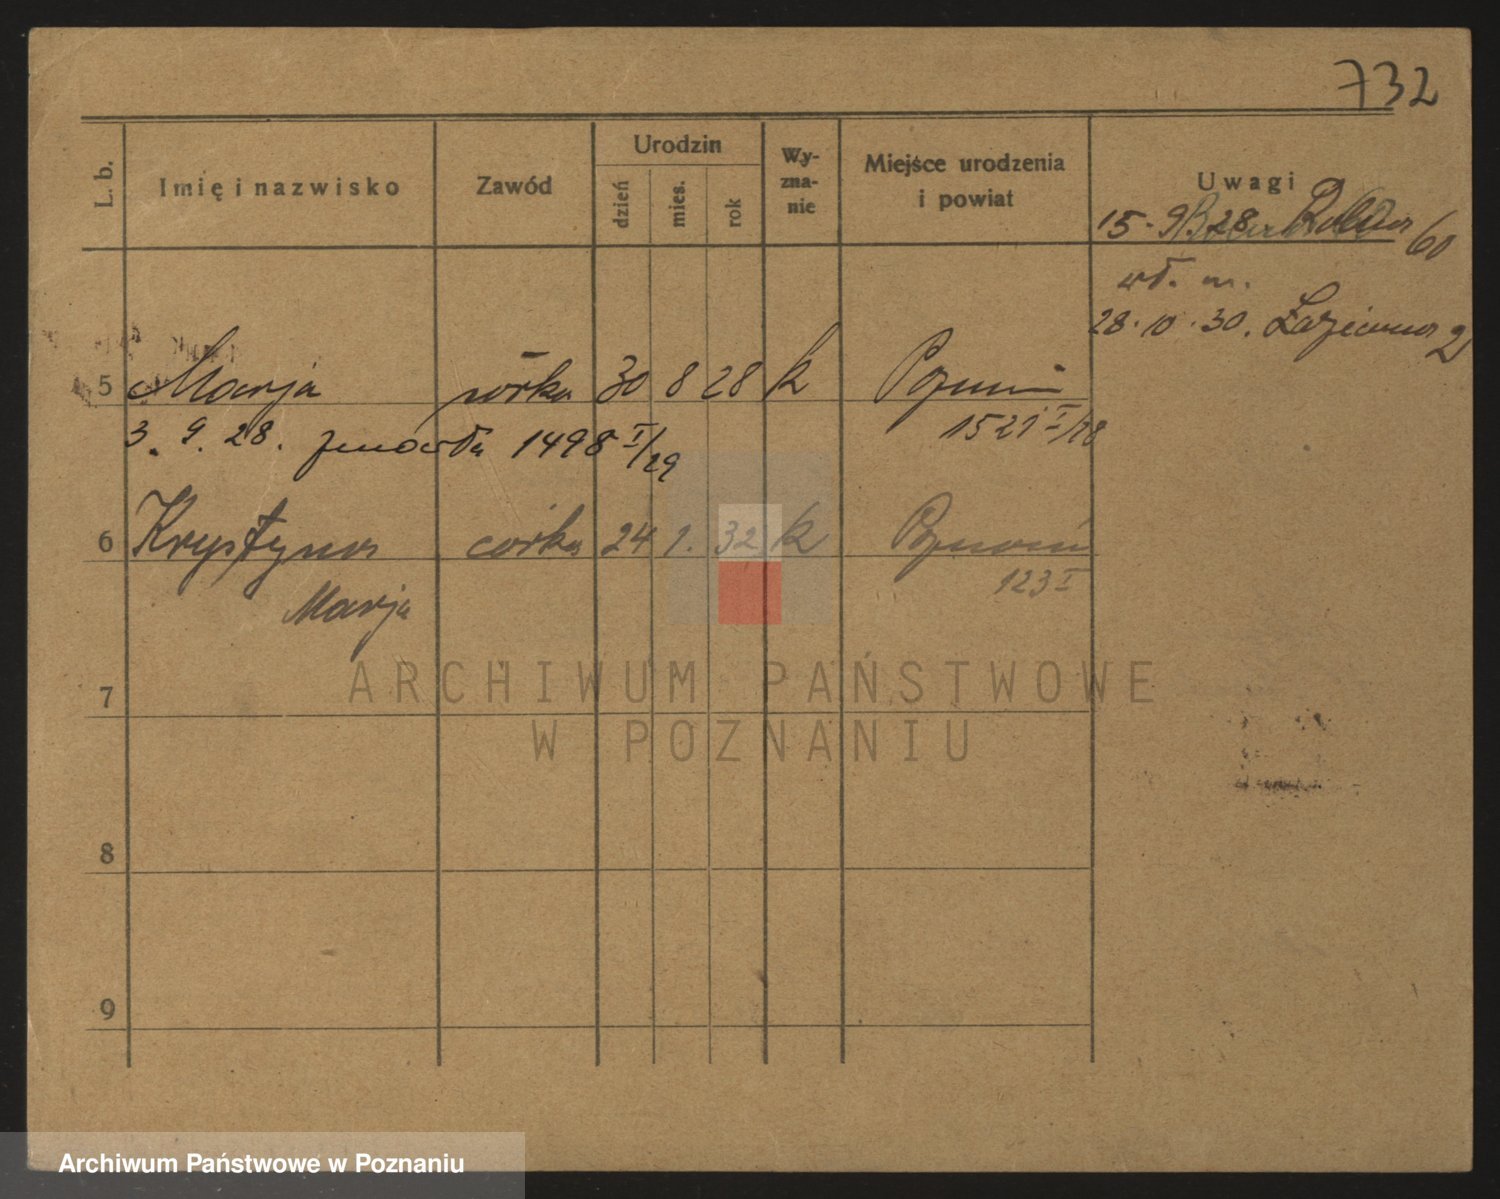 732
L. b. Imię i nazwisko Zawód Urodzin dzień mies. rok Wy-zna-nie Miejsce urodzenia i powiat Uwagi
15. 9. 28 60
wł. m.
28. 10. 30. 2
5 Marja córka 30 8 28 k Poznań
3. 9. 28. zmarła 1498 I/29 1521 I/28
6 Krystyna córka 24 1. 32 k Poznań
Marja 123 I
7
8
9
ARCHIWUM PAŃSTWOWE
W POZNANIU
Archiwum Państwowe w Poznaniu